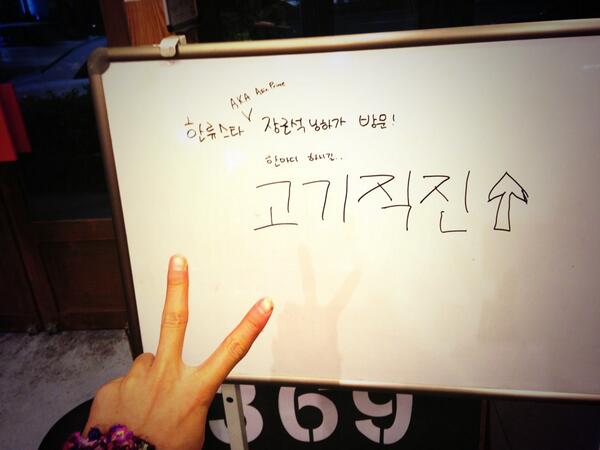 AKA Asia Prince
한류스타 장근석 님하가 방문!
한마디 하시길..
고기직진↑
369